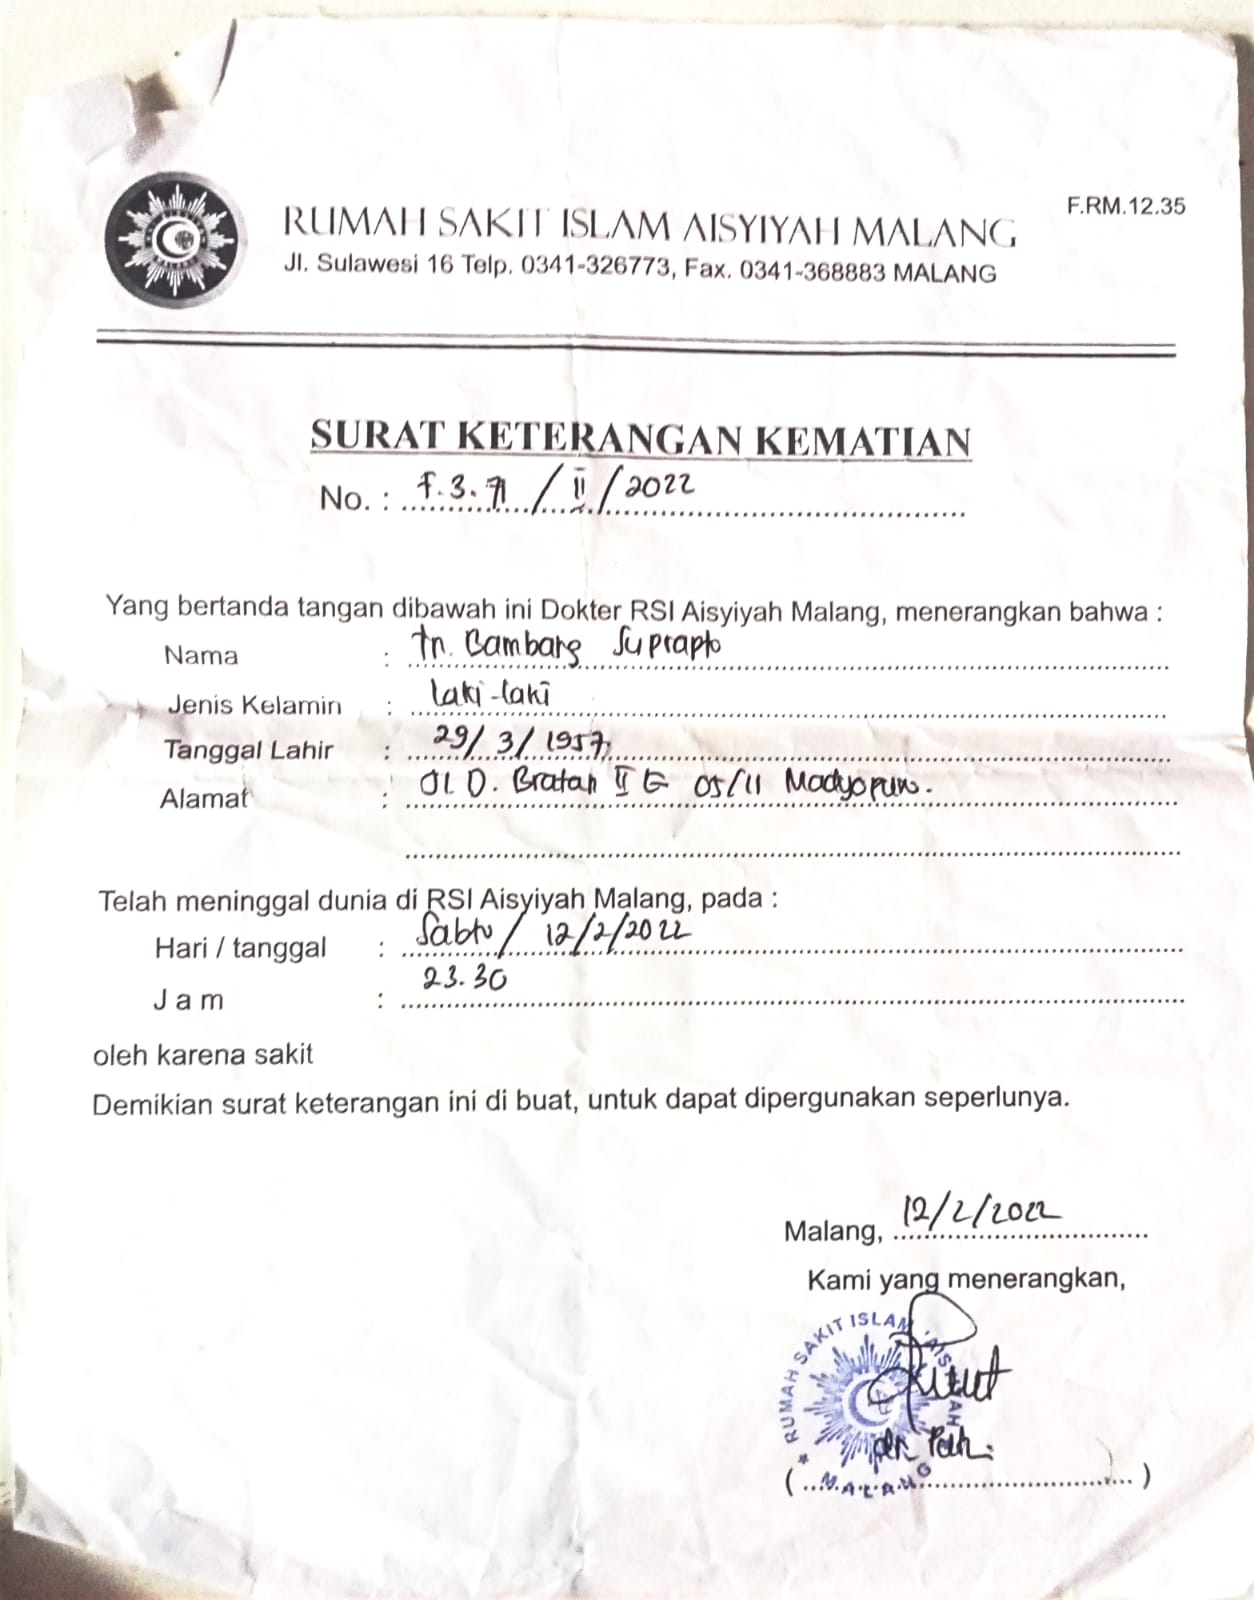 F.RM.12.35
RUMAH SAKIT ISLAM AISYIYAH MALANG
Jl. Sulawesi 16 Telp. 0341-326773, Fax. 0341-368883 MALANG
SURAT KETERANGAN KEMATIAN
No. : F.3.71 / II / 2022
Yang bertanda tangan dibawah ini Dokter RSI Aisyiyah Malang, menerangkan bahwa :
Nama : tn. Bambang Suprapto
Jenis Kelamin : laki-laki
Tanggal Lahir : 29/3/1957
Alamat : Jl. D. Bratan II E 05/11 Madyopuro.
Telah meninggal dunia di RSI Aisyiyah Malang, pada :
Hari / tanggal : Sabtu / 12/2/2022
Jam : 23.30
oleh karena sakit
Demikian surat keterangan ini di buat, untuk dapat dipergunakan seperlunya.
Malang, 12/2/2022
Kami yang menerangkan,
RUMAH SAKIT ISLAM AISYIYAH
MALANG